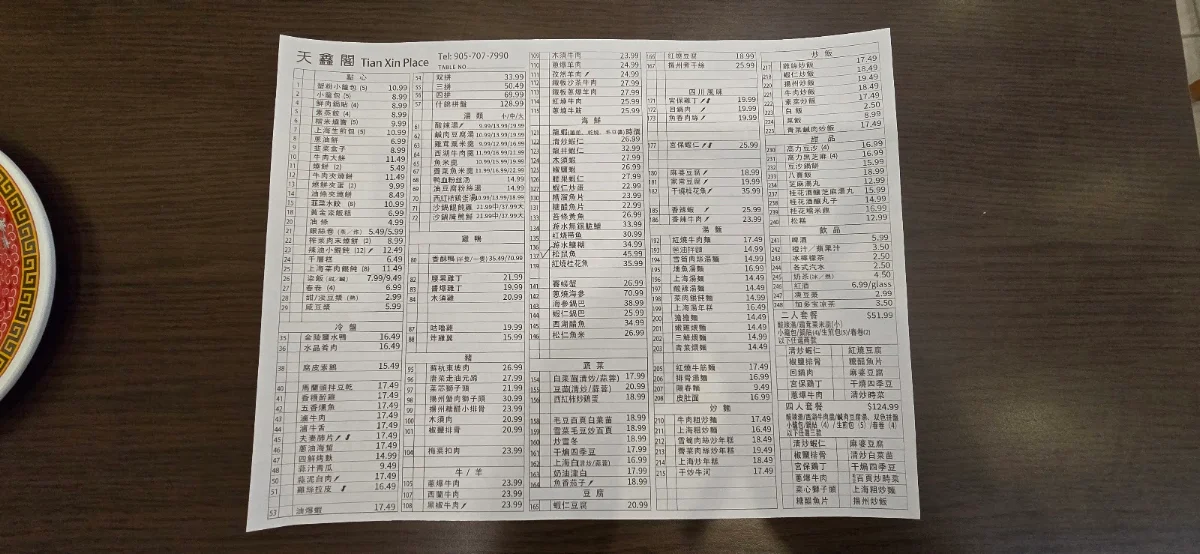 天鑫閣 Tian Xin Place
Tel: 905-707-7990
TABLE NO
點心
1 蟹粉小籠包 (5) 10.99
2 小籠包 (5) 8.99
4 鮮肉鍋貼 (4) 8.99
5 素蒸餃 (4) 8.99
6 糯米燒賣 (5) 9.99
7 上海生煎包 (4) 10.99
8 蔥油餅 6.99
9 韮菜盒子 8.99
10 牛肉大餅 11.49
11 燒餅 (2) 5.49
12 牛肉夾燒餅 11.49
13 燒餅夾蛋 (2) 9.99
14 油條夾燒餅 8.49
15 韮菜水餃 (8) 10.99
18 黃金滾飯糕 6.99
20 油條 4.99
21 銀絲卷 (蒸／炸) 5.49/5.99
22 榨菜肉末燒餅 (2) 8.99
23 辣油小餛飩 (12) 12.49
24 千層糕 6.49
25 上海菜肉餛飩 (8) 11.49
26 粢飯 (咸/甜) 7.99/9.49
27 春卷 (4) 6.99
28 甜/淡豆漿 (熱) 2.99
29 咸豆漿 5.99
冷盤
35 金陵鹽水鴨 16.49
36 水晶肴肉 16.49
38 腐皮素鵝 15.49
40 馬蘭頭拌豆乾 17.49
41 香糟醉雞 17.49
42 五香燻魚 17.49
43 滷牛肉 17.49
44 滷牛舌 17.49
45 夫妻肺片 17.49
46 蔥油海蜇 17.49
47 四鮮烤麩 14.99
48 蒜汁青瓜 9.49
50 蒜泥白肉 17.49
51 雞絲拉皮 16.49
53 油爆蝦 17.49
54 双拼 33.99
55 三拼 50.49
56 四拼 69.99
57 什錦拼盤 128.99
湯類 小/中/大
61 酸辣湯 9.99/13.99/19.99
62 鹹肉豆腐湯 10.99/13.99/19.99
63 雞茸粟米羹 9.99/13.99/19.99
64 西湖牛肉羹 11.99/16.99/22.99
65 魚米羹 10.99/15.99/19.99
67 蟹菜魚米羹 11.99/16.99/22.99
68 鴨血粉丝汤 14.99
69 油豆腐粉絲湯 14.99
70 西紅柿雞蛋湯 10.99/13.99/18.99
71 沙鍋餛飩雞 22.99中/37.99大
72 沙鍋醃篤鮮 21.99中/37.99大
雞鴨
80 香酥鴨 (半隻/一隻) 35.49/70.99
82 腰果雞丁 21.99
83 醬爆雞丁 19.99
84 木須雞 20.99
87 咕嚕雞 19.99
88 炸雞翼 15.99
豬
95 蘇杭東坡肉 26.99
96 唐菜走油元蹄 27.99
97 菜芯獅子頭 21.99
98 揚州蟹肉獅子頭 30.99
99 揚州糖醋小排骨 23.99
100 木須肉 20.99
101 椒鹽排骨 20.99
104 梅菜扣肉 23.99
牛/羊
105 蔥爆牛肉 23.99
107 西蘭牛肉 23.99
108 黑椒牛肉 23.99
109 木須牛肉 23.99
110 蔥爆羊肉 24.99
111 孜然羊肉 24.99
112 鐵板沙茶牛肉 27.99
113 鐵板蔥爆牛肉 27.99
114 紅燒牛肉 25.99
115 蔥燒牛筋 25.99
海鮮
122 清炒蝦仁 26.99
123 龍井蝦仁 32.99
124 木須蝦 27.99
125 椒鹽蝦 26.99
126 腰果蝦仁 27.99
127 蝦仁炒蛋 22.99
130 糟溜魚片 23.99
131 糖醋魚片 22.99
133 苔條黃魚 26.99
134 游水無錫脆鱔 33.99
135 紅燒帶魚 30.99
136 游水鱔糊 34.99
137 松鼠魚 45.99
139 紅燒桂花魚 35.99
141 賽螃蟹 26.99
142 蔥燒海參 70.99
143 海參鍋巴 38.99
144 蝦仁鍋巴 25.99
145 西湖醋魚 34.99
146 松仁魚米 26.99
蔬菜
154 白菜苗(清炒/蒜蓉) 17.99
155 豆苗(清炒/蒜蓉) 20.99
156 西紅柿炒雞蛋 18.99
158 毛豆百頁白菜苗 18.99
159 雪菜毛豆炒百頁 18.99
160 炒雪冬 18.99
161 干煸四季豆 17.99
162 上海白(扒/炒/蒜蓉) 16.99
163 奶油津白 17.99
164 魚香茄子 18.99
豆腐
165 蝦仁豆腐 20.99
166 紅燒豆腐 18.99
167 揚州煮干絲 25.99
四川風味
171 宮保雞丁 19.99
172 回鍋肉 19.99
173 魚香肉絲 19.99
177 宮保蝦仁 25.99
180 麻婆豆腐 18.99
181 家常豆腐 19.99
182 干燒桂花魚 35.99
185 香辣蝦 25.99
186 香辣牛肉 23.99
湯麵
192 紅燒牛肉麵 17.49
193 蔥油拌麵 14.99
194 雪菊肉絲湯麵 14.99
195 燻魚湯麵 16.49
196 上海湯麵 14.49
197 酸辣湯麵 14.49
198 菜肉餛飩麵 14.99
199 上海湯年糕 16.99
200 擔擔麵 14.49
201 嫩雞煨麵 14.49
202 三鮮煨麵 14.99
203 青菜煨麵 14.49
205 紅燒牛筋麵 17.49
206 排骨湯麵 16.99
207 陽春麵 9.49
208 皮肚面 16.99
炒麵
210 牛肉粗炒麵 17.49
211 上海粗炒麵 16.49
212 雪菊肉絲炒年糕 18.49
213 薺菜肉絲炒年糕 19.49
214 上海炒年糕 18.49
215 干炒牛河 17.49
炒飯
217 雞絲炒飯 17.49
218 蝦仁炒飯 18.49
220 揚州炒飯 17.49
221 牛肉炒飯 18.49
222 素菜炒飯 17.49
223 白飯 2.50
224 菜飯 8.99
225 青菜鹹肉炒飯 17.49
甜品
230 高力豆沙 (4) 16.99
231 高力黑芝麻 (4) 16.99
232 豆沙鍋餅 15.99
233 八寶飯 18.99
234 芝麻湯丸 12.99
237 桂花酒釀芝麻湯丸 15.99
238 桂花酒釀丸子 14.99
239 桂花糯米藕 16.99
240 松糕 12.99
飲品
241 啤酒 5.99
242 橙汁／蘋果汁 3.50
243 冰檸檬茶 2.50
244 各式汽水 2.50
245 奶茶(冰／熱) 4.50
246 紅酒 6.99/glass
247 凍豆漿 2.99
248 加多宝凉茶 3.50
二人套餐 $51.99
酸辣湯/雞茸粟米羹(小)
小籠包/鍋貼(4)/生煎包(3)/春卷(2)
以下任選兩款
清炒蝦仁 紅燒豆腐
椒鹽排骨 糖醋魚片
回鍋肉 麻婆豆腐
宮保雞丁 干燒四季豆
蔥爆牛肉 清炒時菜
四人套餐 $124.99
酸辣湯/西湖牛肉羹/鹹肉豆腐湯, 双色拼盤
小籠包/鍋貼 (4) /生煎包 (5) /春卷 (4)
以下任選三款
清炒蝦仁 麻婆豆腐
椒鹽排骨 清炒白菜苗
宮保雞丁 干煸四季豆
蔥爆牛肉 百頁炒時菜
菜心獅子頭 上海粗炒麵
糖醋魚片 揚州炒飯